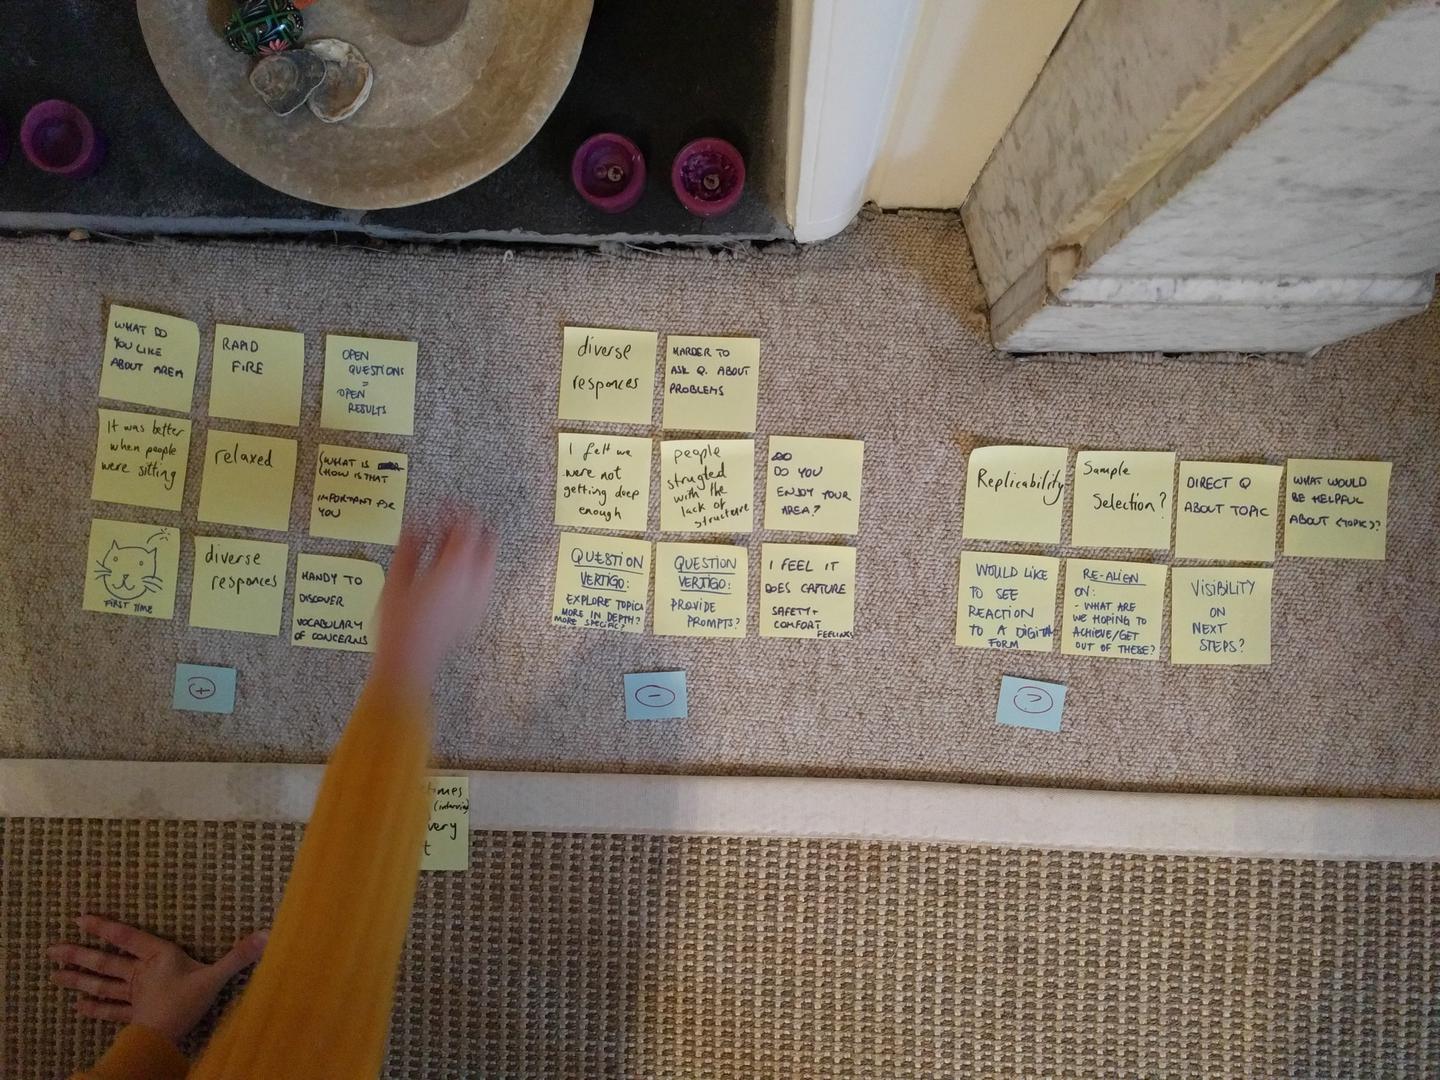 WHAT DO
YOU LIKE
ABOUT AREA
RAPID
FIRE
OPEN
QUESTIONS
=
OPEN
RESULTS
It was better
when people
were sitting
relaxed
(WHAT IS
(HOW IS THAT
IMPORTANT FOR
YOU
FIRST TIME
diverse
responces
HANDY TO
DISCOVER
VOCABULARY
OF CONCERNS
+
diverse
responces
HARDER TO
ASK Q. ABOUT
PROBLEMS
I felt we
were not
getting deep
enough
people
strugled
with the
lack of
structure
DO YOU
ENJOY YOUR
AREA?
QUESTION
VERTIGO:
EXPLORE TOPICS
MORE IN DEPTH?
MORE SPECIFIC?
QUESTION
VERTIGO:
PROVIDE
PROMPTS?
I FEEL IT
DOES CAPTURE
SAFETY +
COMFORT
FEELINGS
-
Replicability
Sample
Selection?
DIRECT Q
ABOUT TOPIC
WHAT WOULD
BE HELPFUL
ABOUT <TOPIC>?
WOULD LIKE
TO SEE
REACTION
TO A DIGITAL
FORM
RE-ALIGN
ON:
- WHAT ARE
WE HOPING TO
ACHIEVE/GET
OUT OF THESE?
VISIBILITY
ON
NEXT
STEPS?
times
very